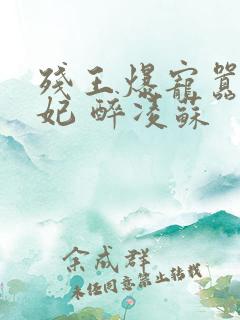 残王爆寵囂
妃 醉凌蘇
余成群
未经同意禁止转载